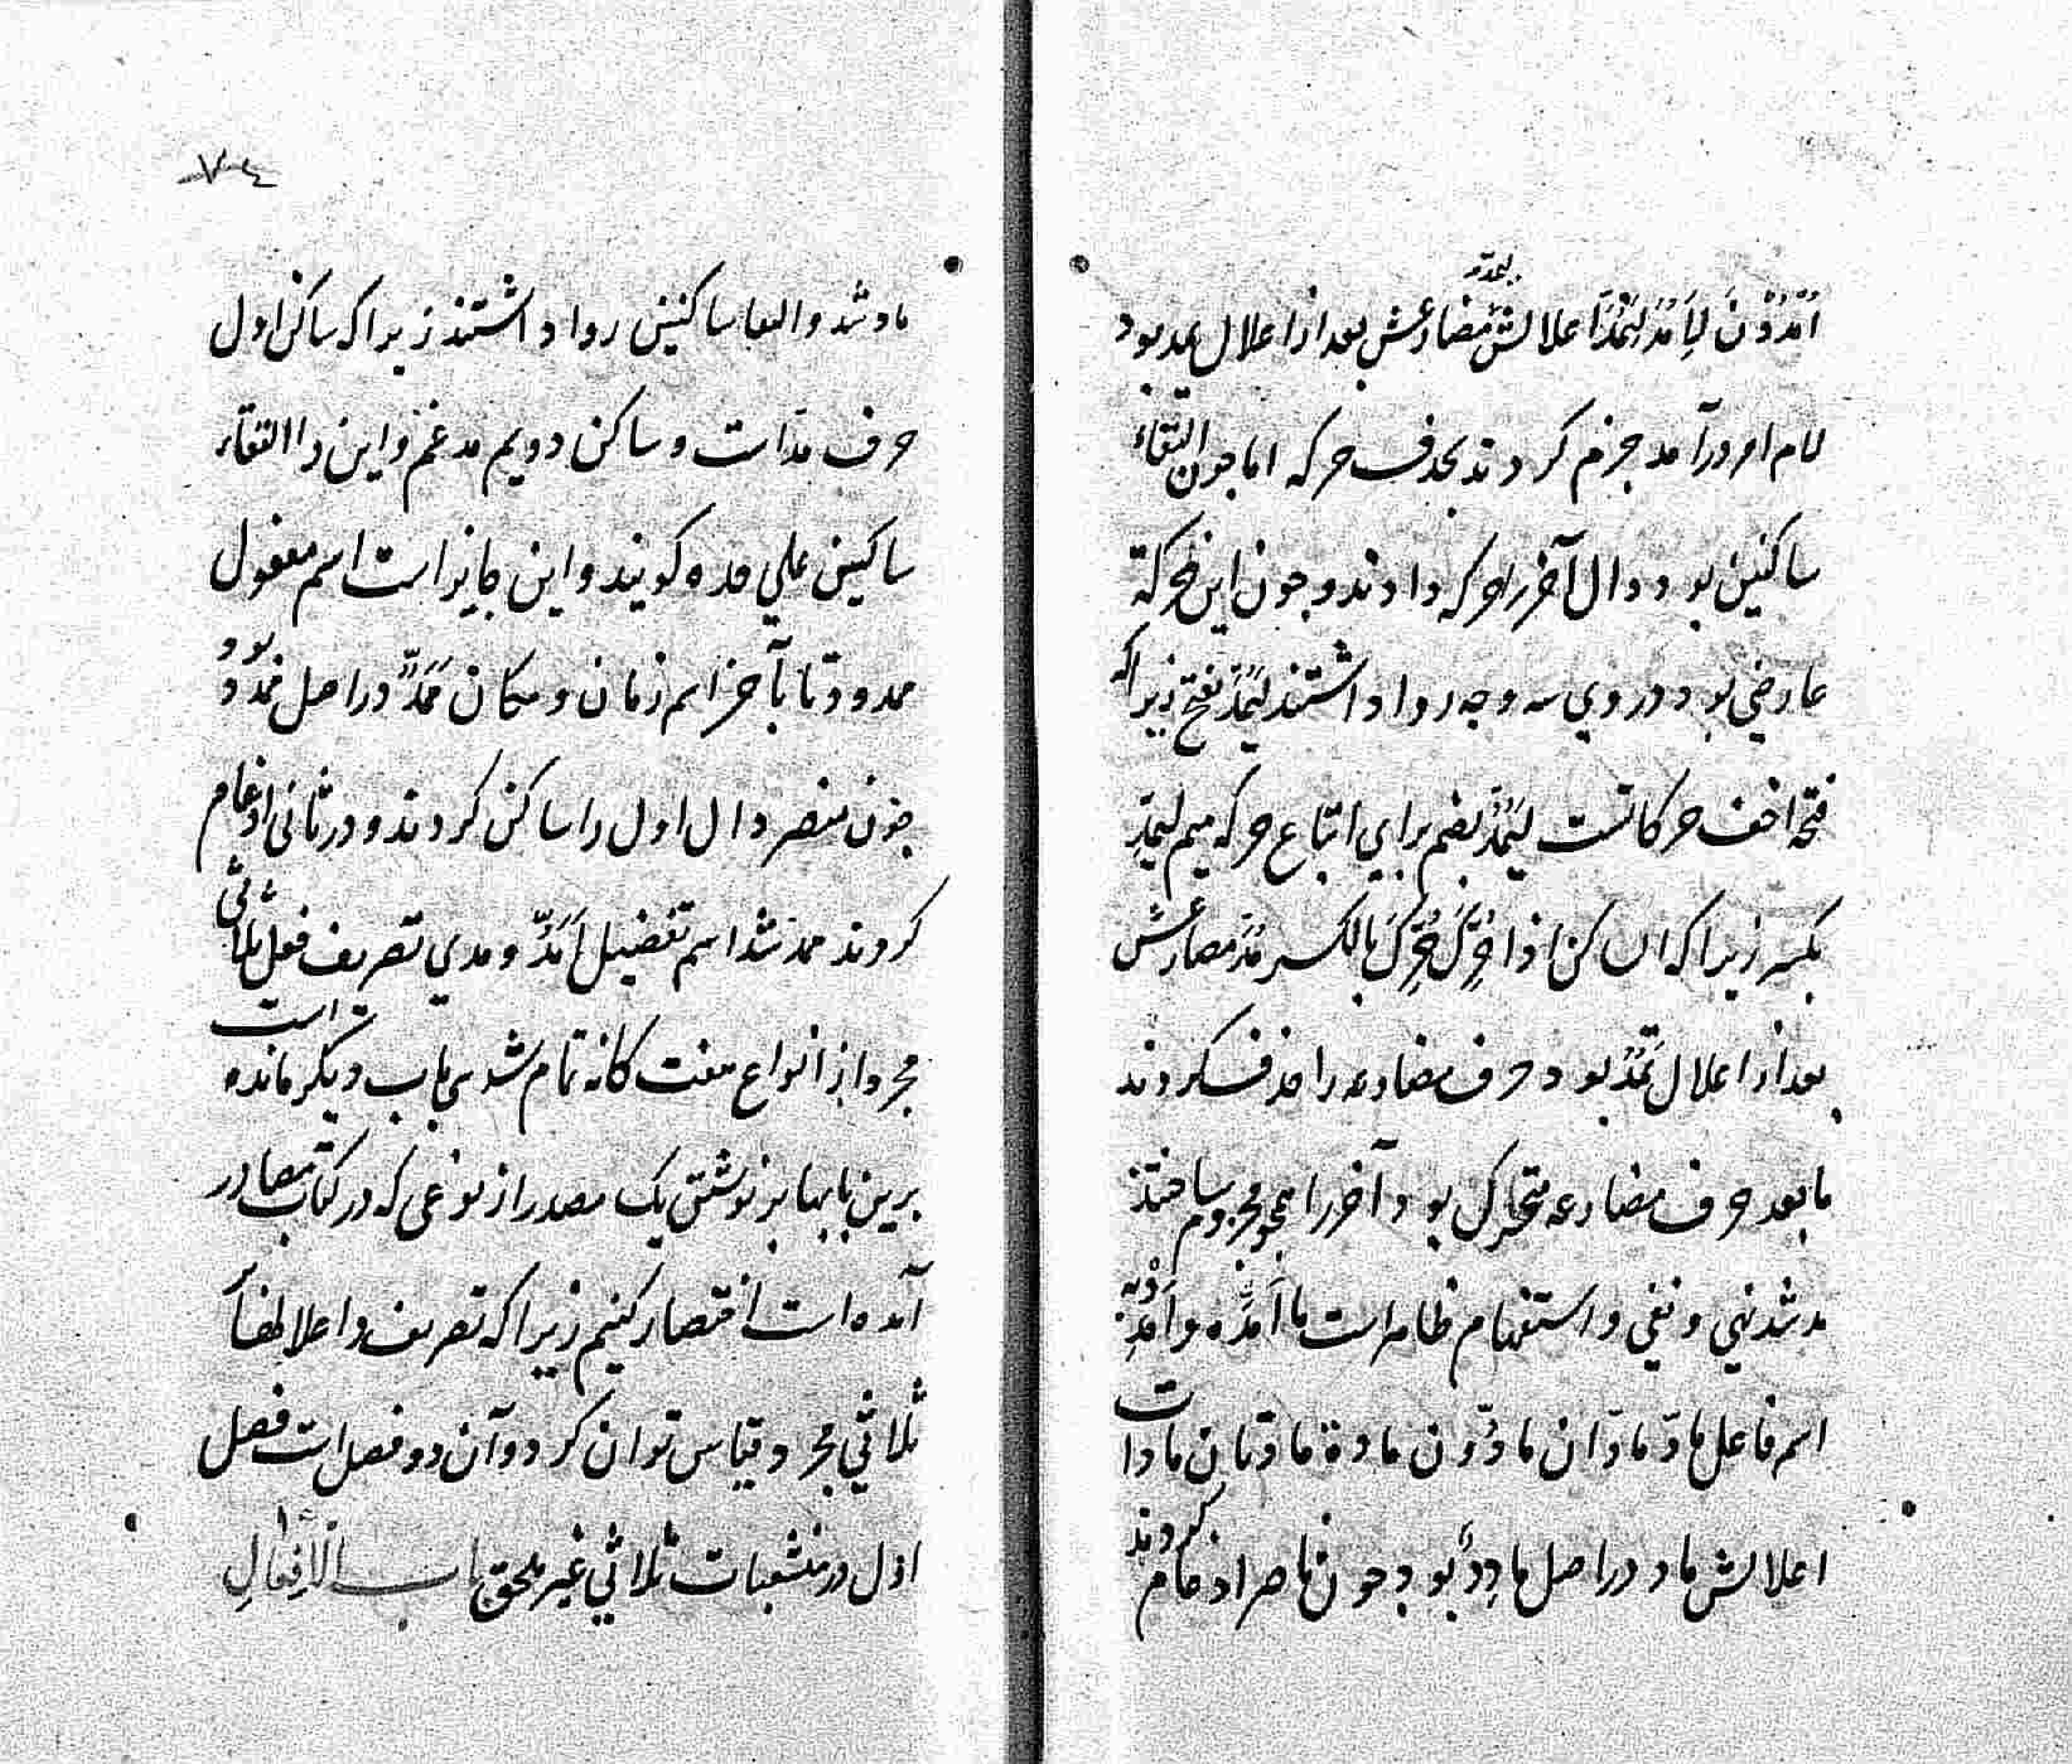 لیمدّ
اُمْدُدْنَ لِیَمُدَّ لِیَمُدَّا اعلالش مضارعش بعد از اعلال یمد بود
لام امر درآمد جزم کردند بحذف حرکه اما چون التقاء
ساکنین بود دال آخر را حرکه دادند و چون این حرکة
عارضی بود در وی سه وجه روا داشتند لِیَمُدَّ بفتح زیراکه
فتحه اخف حرکاتست لِیَمُدُّ بضم برای اتباع حرکه میم لِیَمُدِّ
بکسر زیراکه الساکن اذا حُرِّکَ حُرِّکَ بالکسر مُدَّ مضارعش
بعد از اعلال تَمُدُّ بود حرف مضارعه را حذف کردند
مابعد حرف مضارعه متحرک بود آخر را مجزوم ساختند
مد شد نهی و نفی و استفهام ظاهر است ما اَمَدَّه و اَمْدِدْ به
اسم فاعل مادّ مادّان مادّون مادة مادّتان مادات
اعلالش ماد در اصل مادِدٌ بود چون ناصر ادغام کردند
۷۴
ماد شد و التقا ساکنین روا داشتند زیراکه ساکن اول
حرف مدّ است و ساکن دویم مدغم و این را التقاء
ساکنین علی حده کویند و این جایز است اسم مفعول
ممدود تا بآخر اسم زمان و مکان مَمَدّ در اصل ممدد بود
چون منصر دال اول را ساکن کردند و در ثانی ادغام
کردند ممد شد اسم تفضیل اَمَدُّ و مدی تصریف فعل ثلاثی
مجرد از انواع هفت کانه تمام شد باب دیکر مانده است
برین بابها بر نوشتن یک مصدر از نوعی که در کتاب مصادر
آمده است اختصار کنیم زیراکه تصریف و اعلالها
ثلاثی مجرد قیاس توان کرد و آن دو فصل است فصل
اول در منشعبات ثلاثی غیر ملحق باب الْاِفعالِ